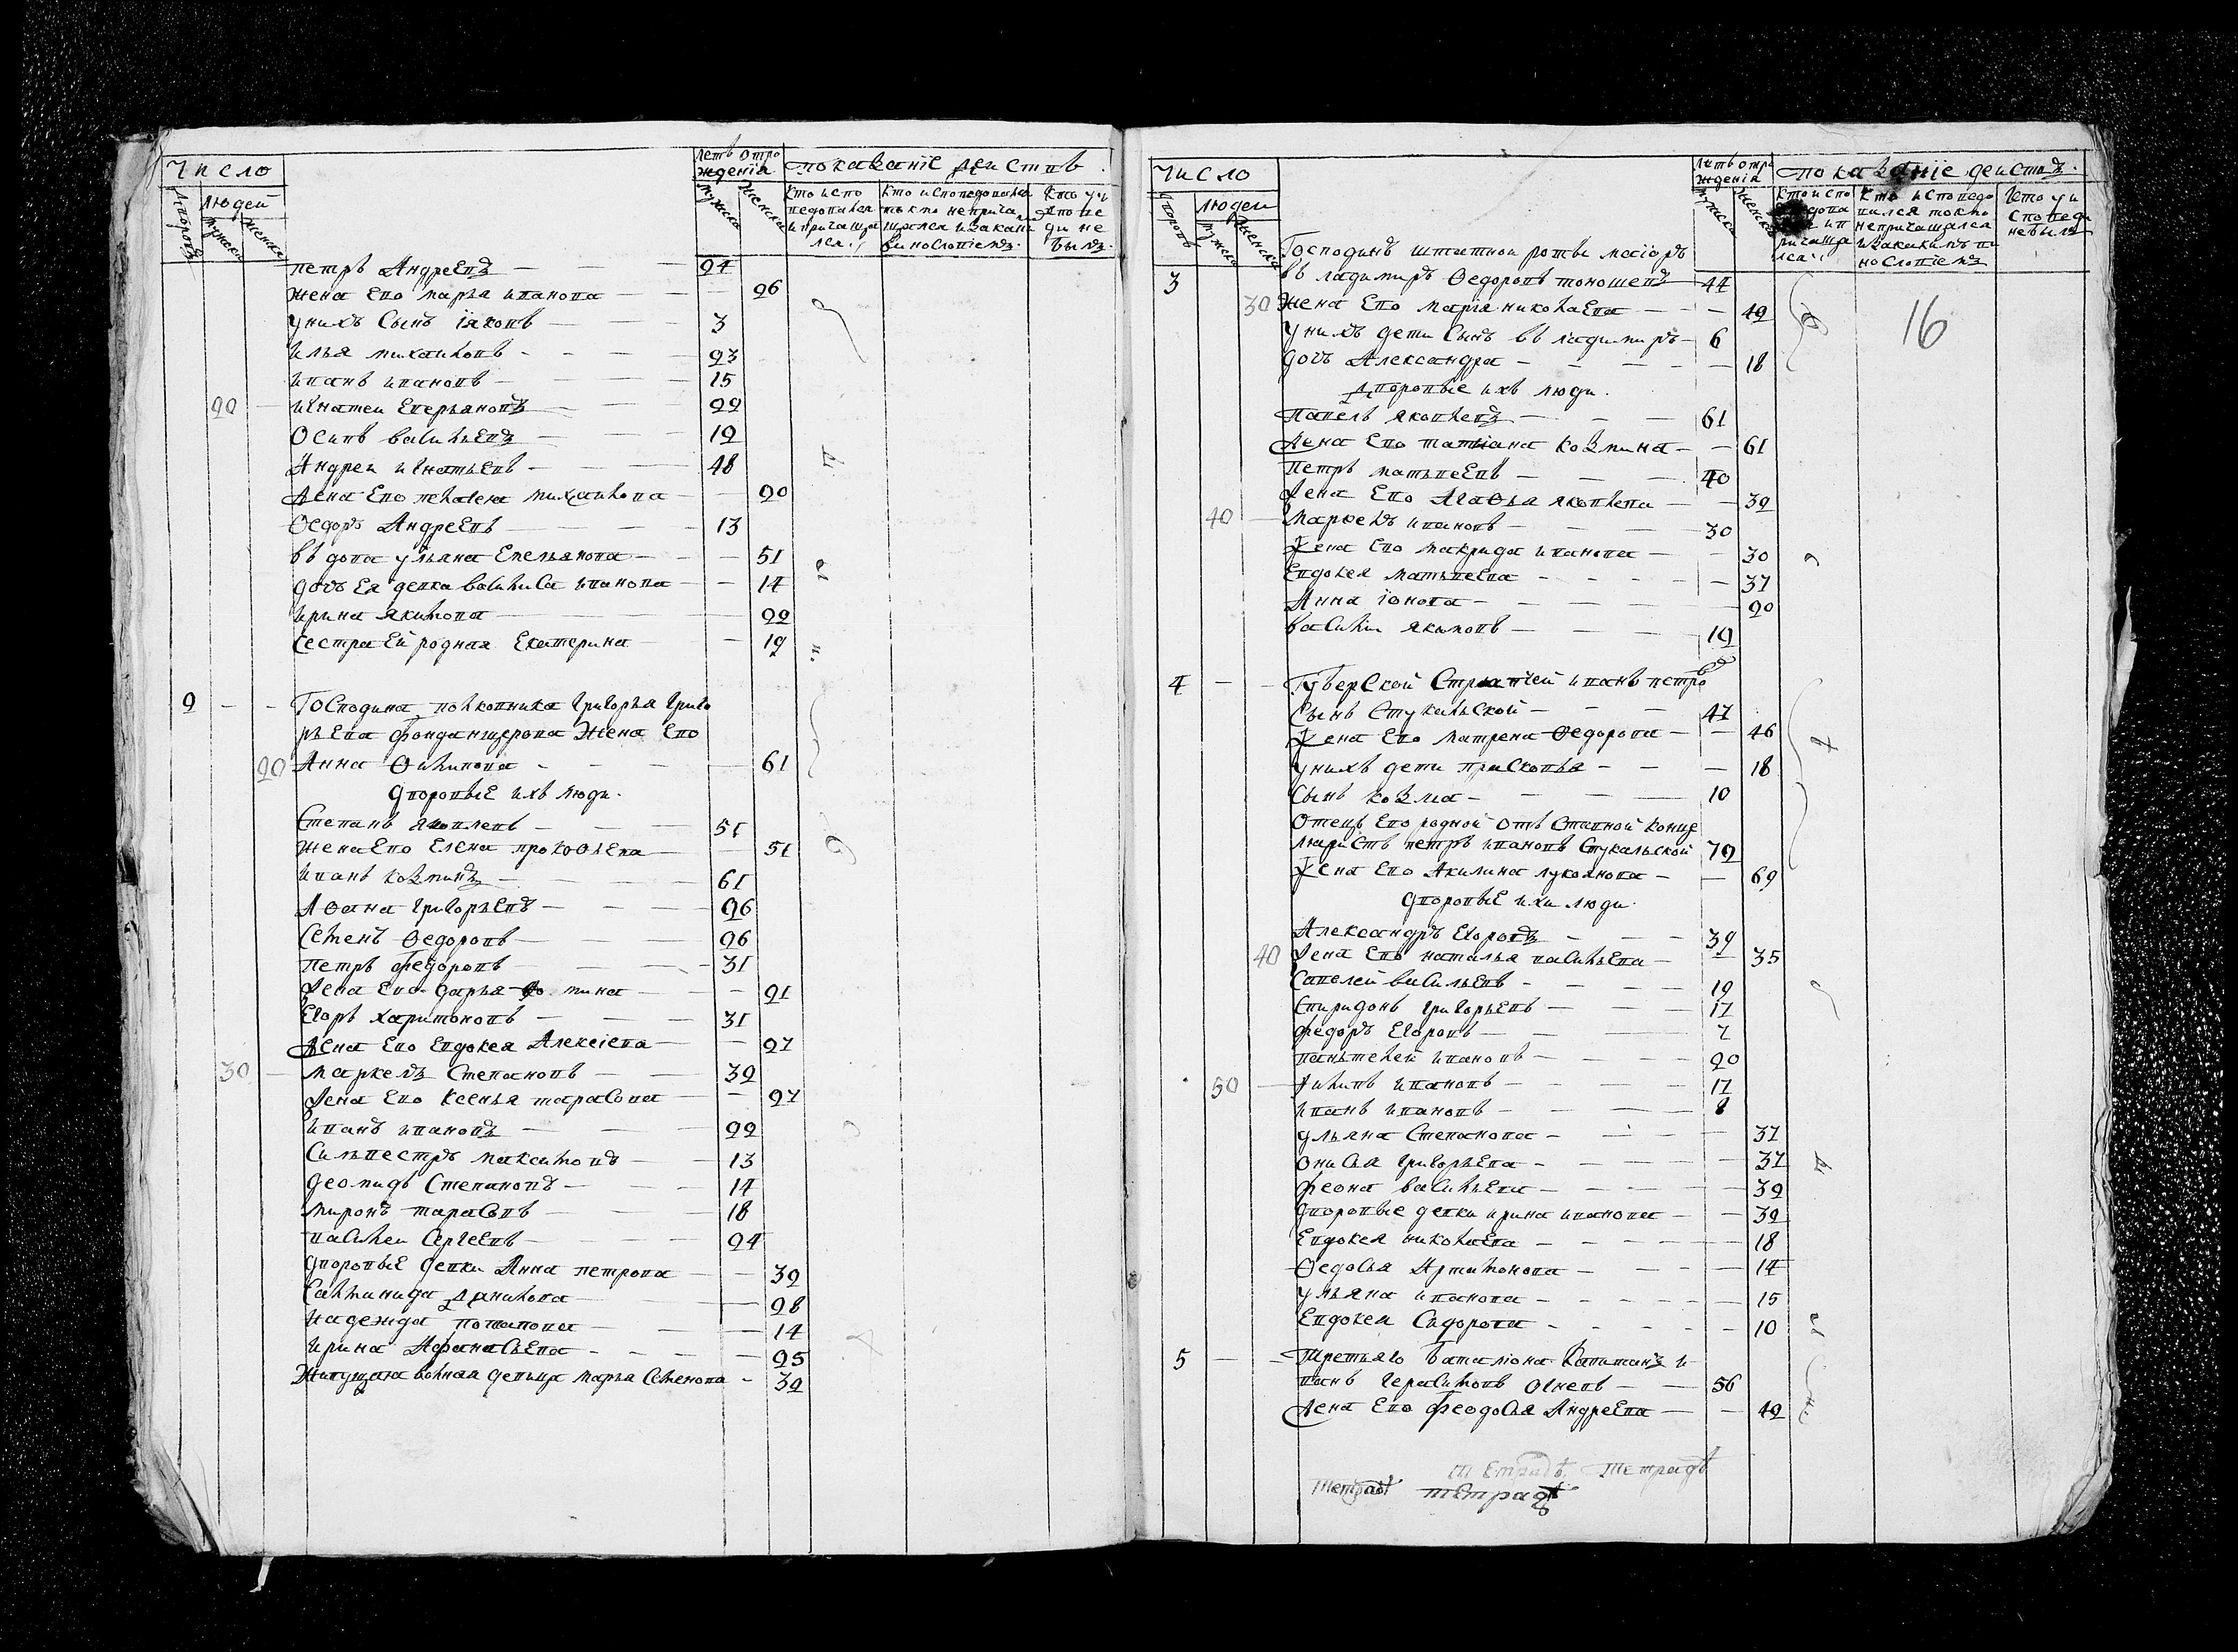 Число
Летъ отро
ждения
показаніе действъ
Дворовъ
людей
мужска
женска
мужска
женска
Кто испо
ведовался
и причаща
лся
Кто исповедовался
токмо не прича
щался и за каки
ви нословіемъ
Кто у и
спове
ди не
былъ
петръ Андреевъ — 24
жена ево марья иванова — 26
у нихъ сынъ іяковъ — 3
илья михаиловъ — 23
иванъ ивановъ — 15
20 игнатеи Еверьяновъ — 22
Осипъ васильевъ — 12
Андреи игнатьевъ — 48
жена ево пелагея михаилова — 20
Ѳедоръ Андреевъ — 13
вдова ульяна Емельянова — 51
дочь Ея девка василиса иванова — 14
ирина якимова — 22
сестра Ей родная Екатерина — 19
2 Господина полковника григорья григо
рьева фонданщерова Жена Ево
20 Анна Ѳилипова — 61
дворовые ихъ люди.
Степанъ яковлевъ — 51
жена Ево Елена прокоѳьева — 51
иванъ козминъ — 61
Аѳана григорьевъ — 26
Семенъ Ѳедоровъ — 26
Петръ федоровъ — 31
жена Ево дарья мина — 21
Егоръ харитоновъ — 31
жена Ево Евдокея Алексіева — 27
30 маркелъ Степановъ — 32
жена Ево Ксенья тарасова — 27
иванъ ивановъ — 22
Сильвестръ максимовъ — 13
деомидъ Степановъ — 14
миронъ тарасовъ — 18
василеи Сергеевъ — 24
дворовые девки Анна петрова — 32
Салтинида данилова — 28
надежда потапова — 14
ирина Афанасьева — 25
Живущая вольная девица марья Семенова — 32
Число
Летъ отро
ждения
показаніе действъ
Дворовъ
людеи
мужска
женска
мужска
женска
Кто исповедо
вался токмо
не причащался
и за какимъ ви
нословіемъ
Кто у и
споведи
не былъ
16
Господинъ штатнои роты маіоръ
3 владимиръ Ѳедоровъ тоношевъ — 44
30 жена Ево марія николаева — 42
у нихъ дети сынъ владимиръ — 6
дочь Александра — 18
дворовые ихъ люди.
павелъ яковлевъ — 61
жена Ево татіана козмина — 61
петръ матвеевъ — 40
жена Ево Агаѳья яковлева — 32
40 маркелъ ивановъ — 30
жена Ево макрида иванова — 30
Евдокея матвеева — 37
Анна іонова — 20
василии якимовъ — 12
4 Губерской Стряпчей иванъ петровъ
сынъ Стукальской — 47
жена Ево матрена Ѳедорова — 46
у нихъ дети прасковья — 18
сынъ козма — 10
отецъ Ево родной отъ ставной канце
ляристъ петръ ивановъ Стукальской — 72
жена Ево Акилина лукоянова — 69
дворовые ихи люди.
Александръ Егоровъ — 39
40 жена Ево наталья васильева — 35
Савелей васильевъ — 12
Спиридонъ григорьевъ — 17
федоръ Егоровъ — 7
пантелей ивановъ — 20
50 филипъ ивановъ — 17
иванъ ивановъ — 8
ульяна Степанова — 37
онисья григорьева — 37
феона васильева — 32
дворовые девки ирина иванова — 32
Евдокея николаева — 18
Ѳедосья Артамонова — 14
ульяна иванова — 15
Евдокея Сидорова — 10
5 Третьяго баталіона Капитанъ и
ванъ герасимовъ Огневъ — 56
жена Ево феодосья Андреева — 42
тетрадь тетрадь
тетрадь тетрадь